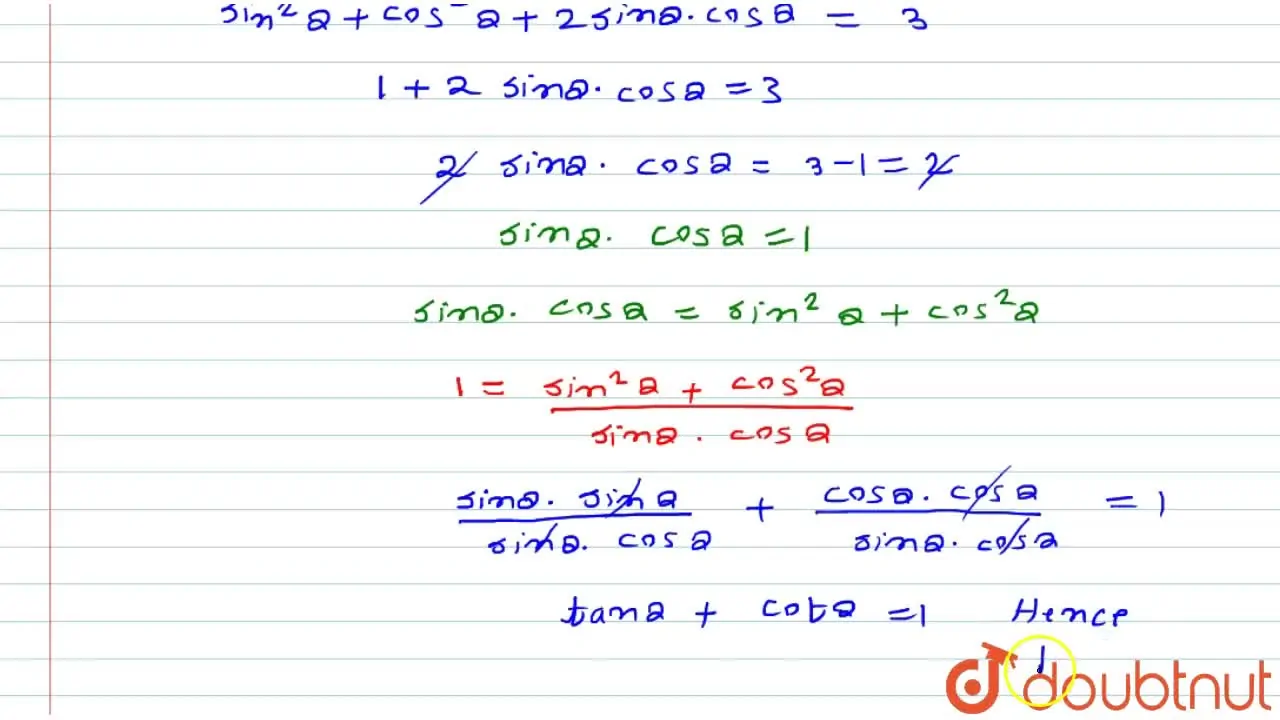 sin² a + cos² a + 2 sina. cosa = 3
1 + 2 sina. cosa = 3
2 sina. cosa = 3 - 1 = 2
sina. cosa = 1
sina. cosa = sin² a + cos² a
1 = sin² a + cos² a / sina . cosa
sina. sina / sina. cosa + cosa. cosa / sina. cosa = 1
tana + cota = 1 Hence
doubtnut